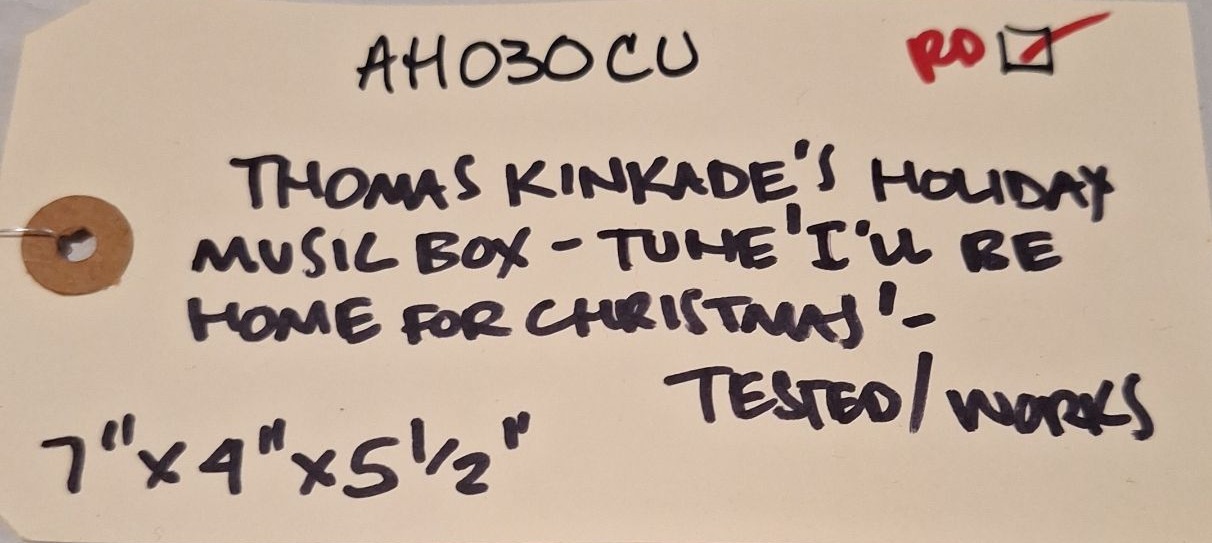 AH030CU RD
THOMAS KINKADE'S HOLIDAY
MUSIC BOX - TUNE 'I'll BE
HOME FOR CHRISTMAS' -
TESTED/WORKS
7" x 4" x 5 1/2"